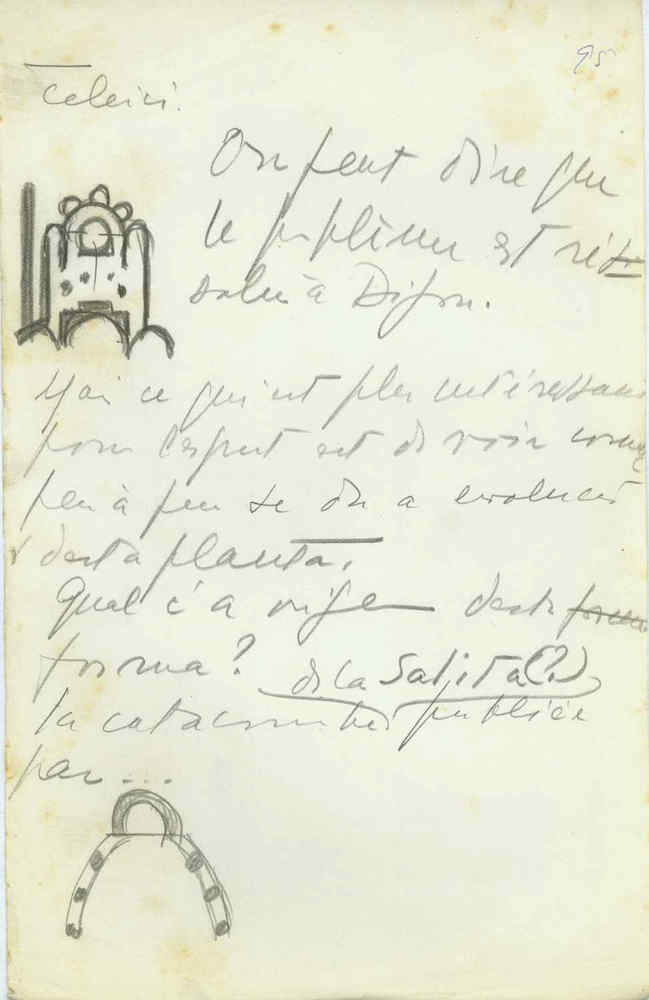 95
Celeiri.
On peut dire que
le problème est rés
solu à Dijon.
Mais ce qui est plus intéressant
pour l'esprit est de voir comme
peu à peu se da a evolució
desta planta.
Qual é a origem desta
forma? de la Saljita (?)
la catacombes publiée
par ...